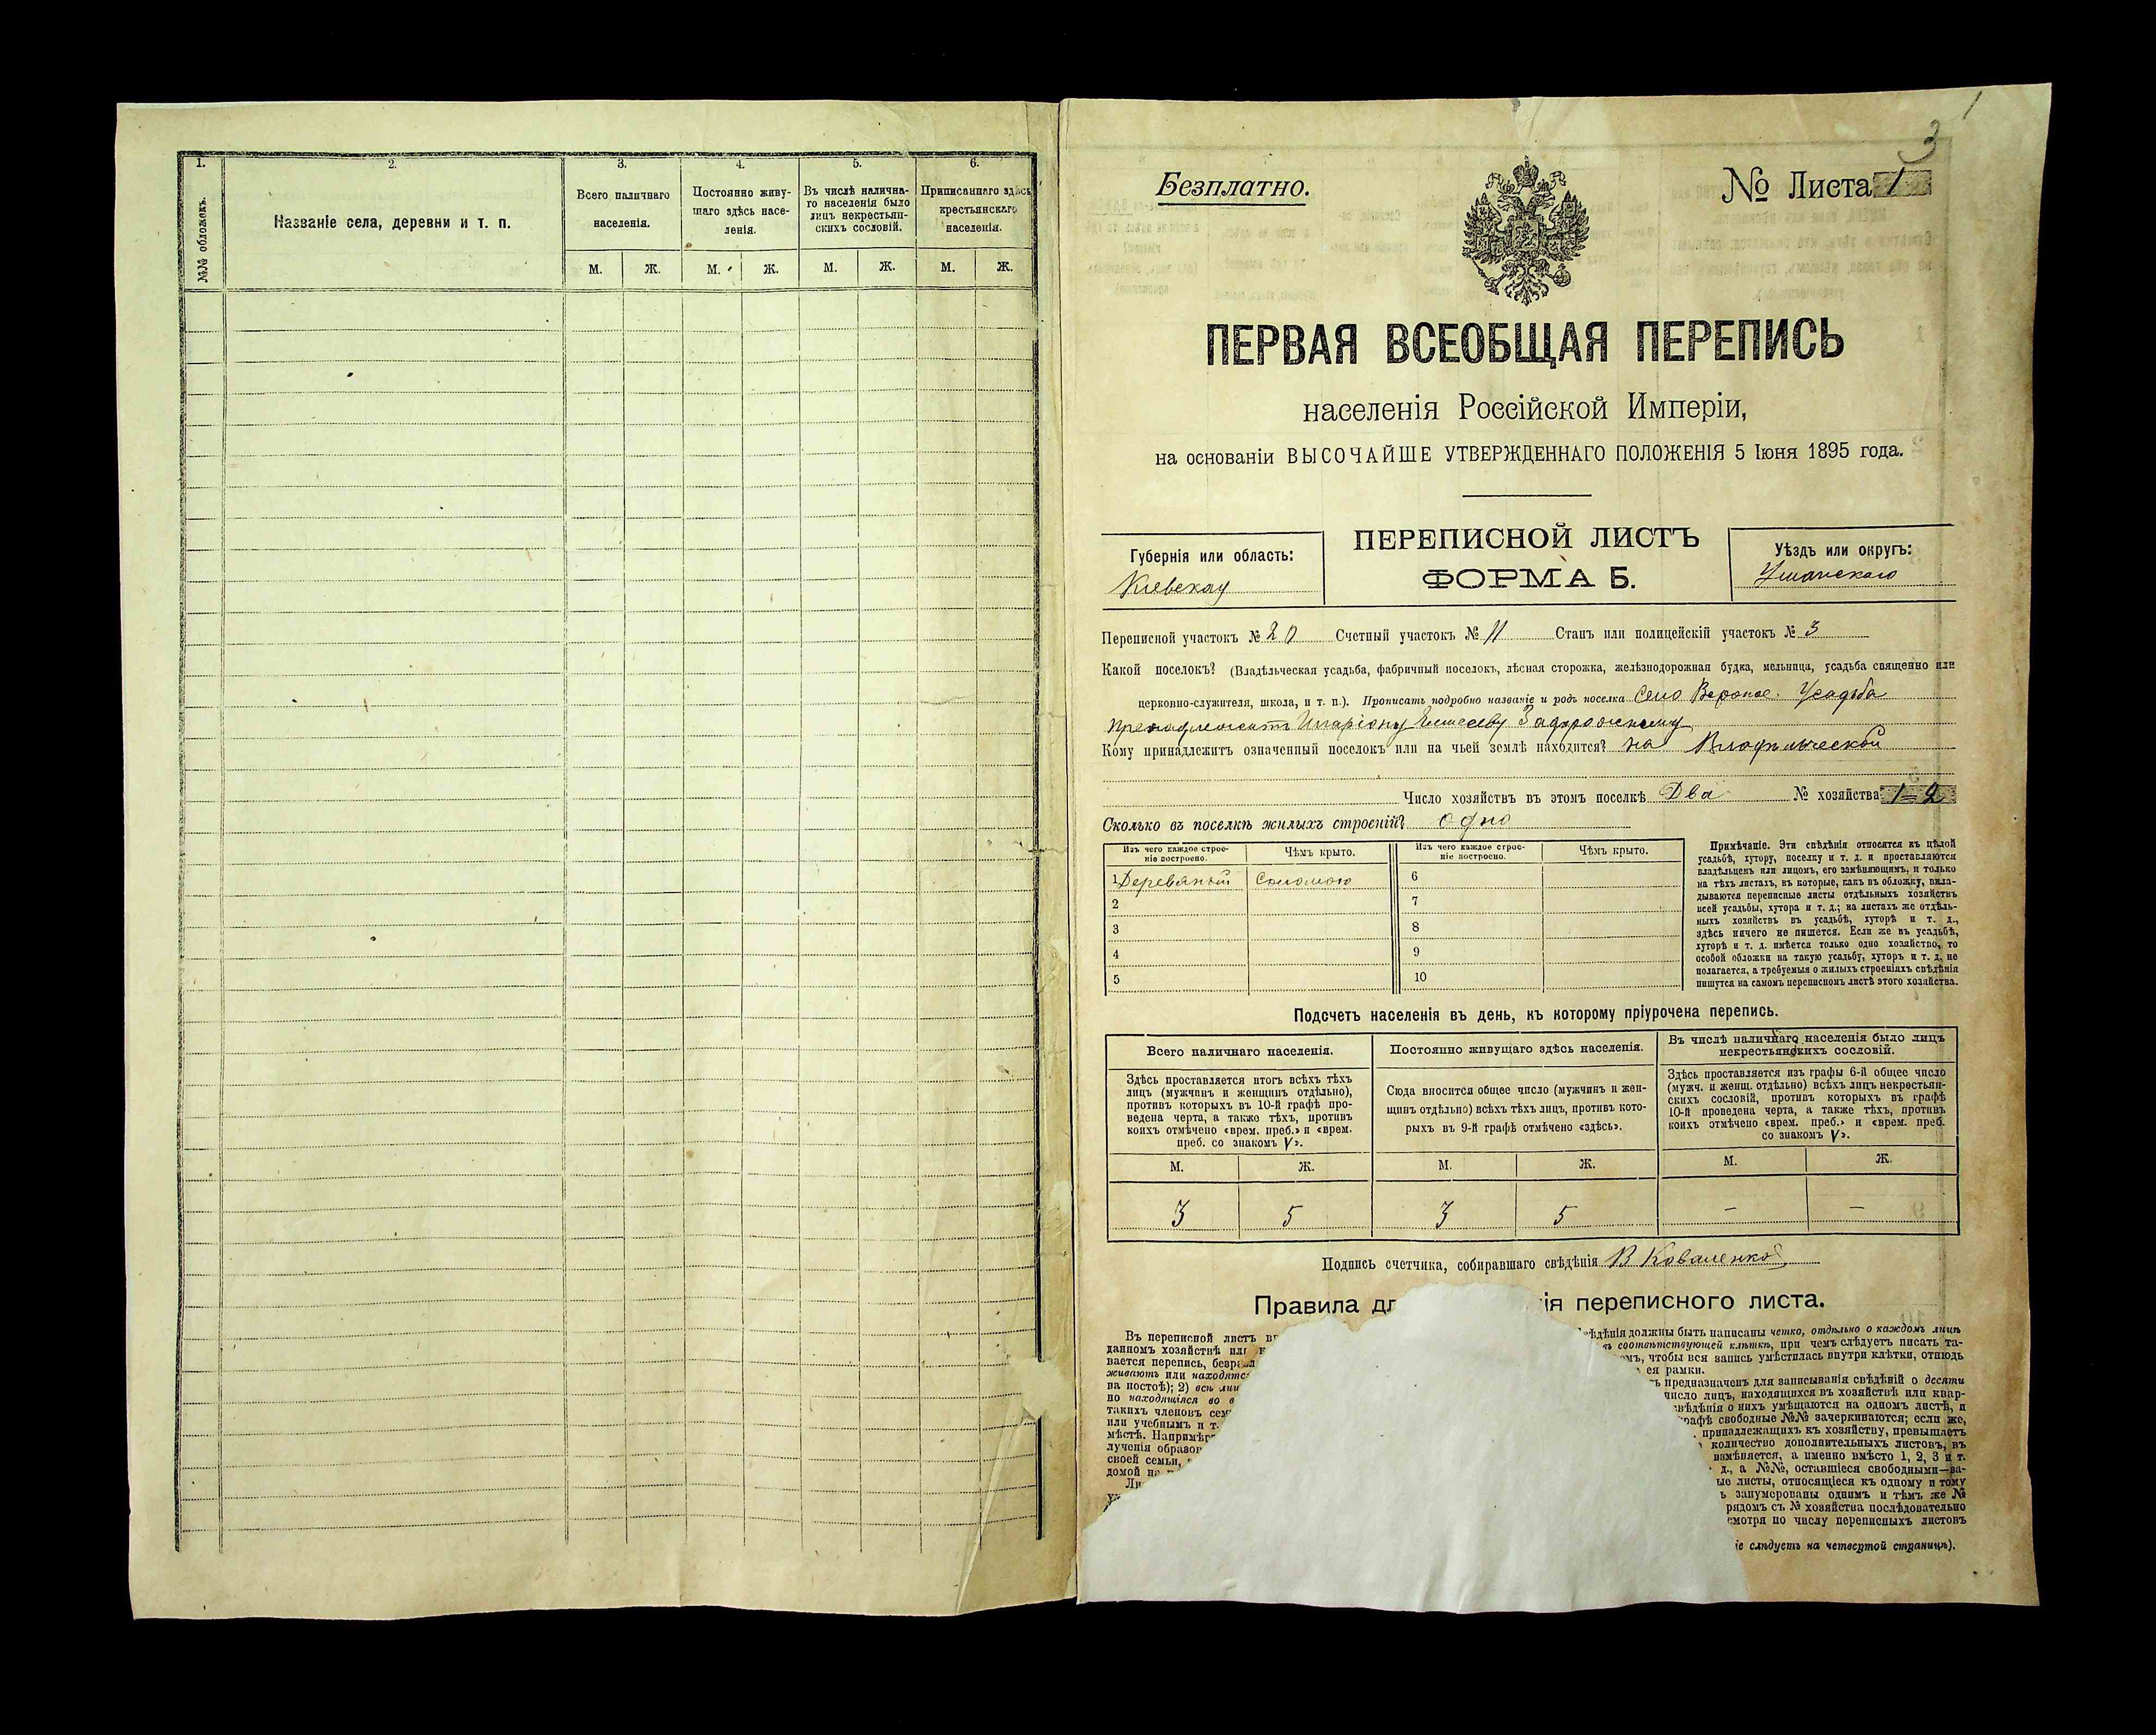 1.
2.
3.
4.
5.
6.
№№ обложекъ.
Названіе села, деревни и т. п.
Всего наличнаго
населенія.
Постоянно живу-
щаго здѣсь насе-
ленія.
Въ числѣ налична-
го населенія было
лицъ некрестьян-
скихъ сословій.
Приписаннаго здѣсь
крестьянскаго
населенія.
М.
Ж.
М.
Ж.
М.
Ж.
М.
Ж.
1
3
Безплатно.
№ Листа 1
ПЕРВАЯ ВСЕОБЩАЯ ПЕРЕПИСЬ
населенія Россійской Имперіи,
на основаніи ВЫСОЧАЙШЕ УТВЕРЖДЕННАГО ПОЛОЖЕНІЯ 5 Іюня 1895 года.
Губернія или область:
Кіевская
ПЕРЕПИСНОЙ ЛИСТЪ
ФОРМА Б.
Уѣздъ или округъ:
Уманскаго
Переписной участокъ № 20 Счетный участокъ № 11 Станъ или полицейскій участокъ № 3
Какой поселокъ? (Владѣльческая усадьба, фабричный поселокъ, лѣсная сторожка, желѣзнодорожная будка, мельница, усадьба священно или
церковно-служителя, школа, и т. п.). Прописать подробно названіе и родъ поселка Село Усадьба
Кому принадлежитъ означенный поселокъ или на чьей землѣ находится? на Владѣльческой
Число хозяйствъ въ этомъ поселкѣ Два № хозяйства 1-2
Сколько въ поселкѣ жилыхъ строеній? одно
Изъ чего каждое строе-
ніе построено.
Чѣмъ крыто.
Изъ чего каждое строе-
ніе построено.
Чѣмъ крыто.
1 Деревяный Соломою
2
3
4
5
6
7
8
9
10
Примѣчаніе. Эти свѣдѣнія относятся къ цѣлой
усадьбѣ, хутору, поселку и т. д. и проставляются
владѣльцемъ или лицомъ, его замѣняющимъ, и только
на тѣхъ листахъ, въ которые, какъ въ обложку, вкла-
дываются переписные листы отдѣльныхъ хозяйствъ
всей усадьбы, хутора и т. д.; на листахъ же отдѣль-
ныхъ хозяйствъ въ усадьбѣ, хуторѣ и т. д.,
здѣсь ничего не пишется. Если же въ усадьбѣ,
хуторѣ и т. д. имѣется только одно хозяйство, то
особой обложки на такую усадьбу, хуторъ и т. д. не
полагается, а требуемыя о жилыхъ строеніяхъ свѣдѣнія
пишутся на самомъ переписномъ листѣ этого хозяйства.
Подсчетъ населенія въ день, къ которому пріурочена перепись.
Всего наличнаго населенія.
Здѣсь проставляется итогъ всѣхъ тѣхъ
лицъ (мужчинъ и женщинъ отдѣльно),
противъ которыхъ въ 10-й графѣ про-
ведена черта, а также тѣхъ, противъ
коихъ отмѣчено «врем. преб.» и «врем.
преб. со знакомъ V».
Постоянно живущаго здѣсь населенія.
Сюда вносится общее число (мужчинъ и жен-
щинъ отдѣльно) всѣхъ тѣхъ лицъ, противъ кото-
рыхъ въ 9-й графѣ отмѣчено «здѣсь».
Въ числѣ наличнаго населенія было лицъ
некрестьянскихъ сословій.
Здѣсь проставляется изъ графы 6-й общее число
(мужч. и женщ. отдѣльно) всѣхъ лицъ некрестьян-
скихъ сословій, противъ которыхъ въ графѣ
10-й проведена черта, а также тѣхъ, противъ
коихъ отмѣчено «врем. преб.» и «врем. преб.
со знакомъ V».
М. Ж. М. Ж. М. Ж.
3 5 3 5 – –
Подпись счетчика, собиравшаго свѣдѣнія В Коваленко
Правила дл
ія переписного листа.
Въ переписной листъ
данномъ хозяйствѣ или
вается перепись,
живаютъ или находятс
на постоѣ); 2) всѣ
но находящіяся во
такихъ членовъ сем
или учебнымъ и т.
мѣстѣ. Напримѣр
лученія образов
своей семьи,
домой на
Ли
ѣдѣнія должны быть написаны четко, отдѣльно о каждомъ лицѣ
соотвѣтствующей клѣткѣ, при чемъ слѣдуетъ писать та-
омъ, чтобы вся запись умѣстилась внутри клѣтки, отнюдь
ея рамки.
ъ предназначенъ для записыванія свѣдѣній о десяти
число лицъ, находящихся въ хозяйствѣ или квар-
свѣдѣнія о нихъ умѣщаются на одномъ листѣ, и
рафѣ свободные №№ зачеркиваются; если же,
принадлежащихъ къ хозяйству, превышаетъ
количество дополнительныхъ листовъ, въ
измѣняется, а именно вмѣсто 1, 2, 3 и т.
д., а №№, оставшіеся свободными—за-
ые листы, относящіеся къ одному и тому
ь занумерованы однимъ и тѣмъ же №
рядомъ съ № хозяйства послѣдовательно
смотря по числу переписныхъ листовъ
іе слѣдуетъ на четвертой страницѣ).